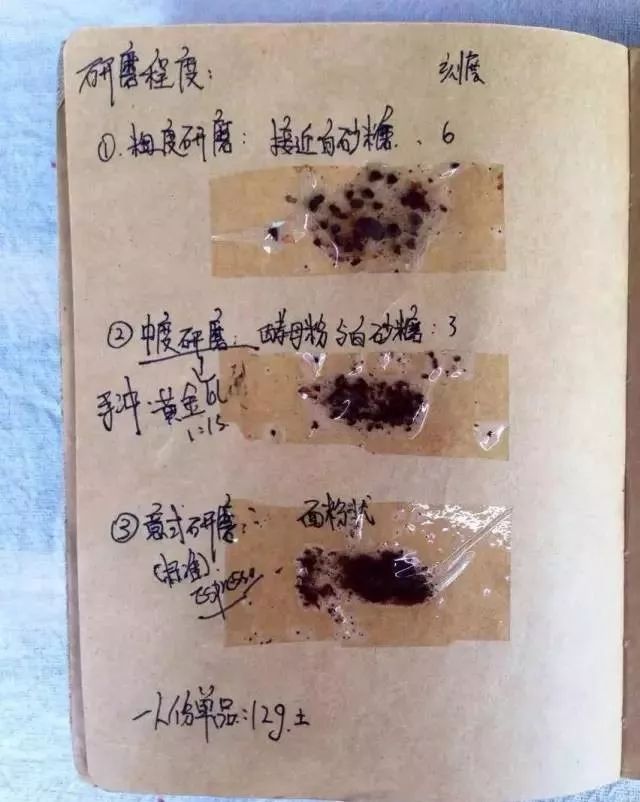 研磨程度: 刻度
①.粗度研磨: 接近白砂糖、6
②中度研磨: 酵母粉与白砂糖:3
手冲·黄金比
1:15
③意式研磨: 面粉状
(标准)
espresso
一人份单品:12g.±